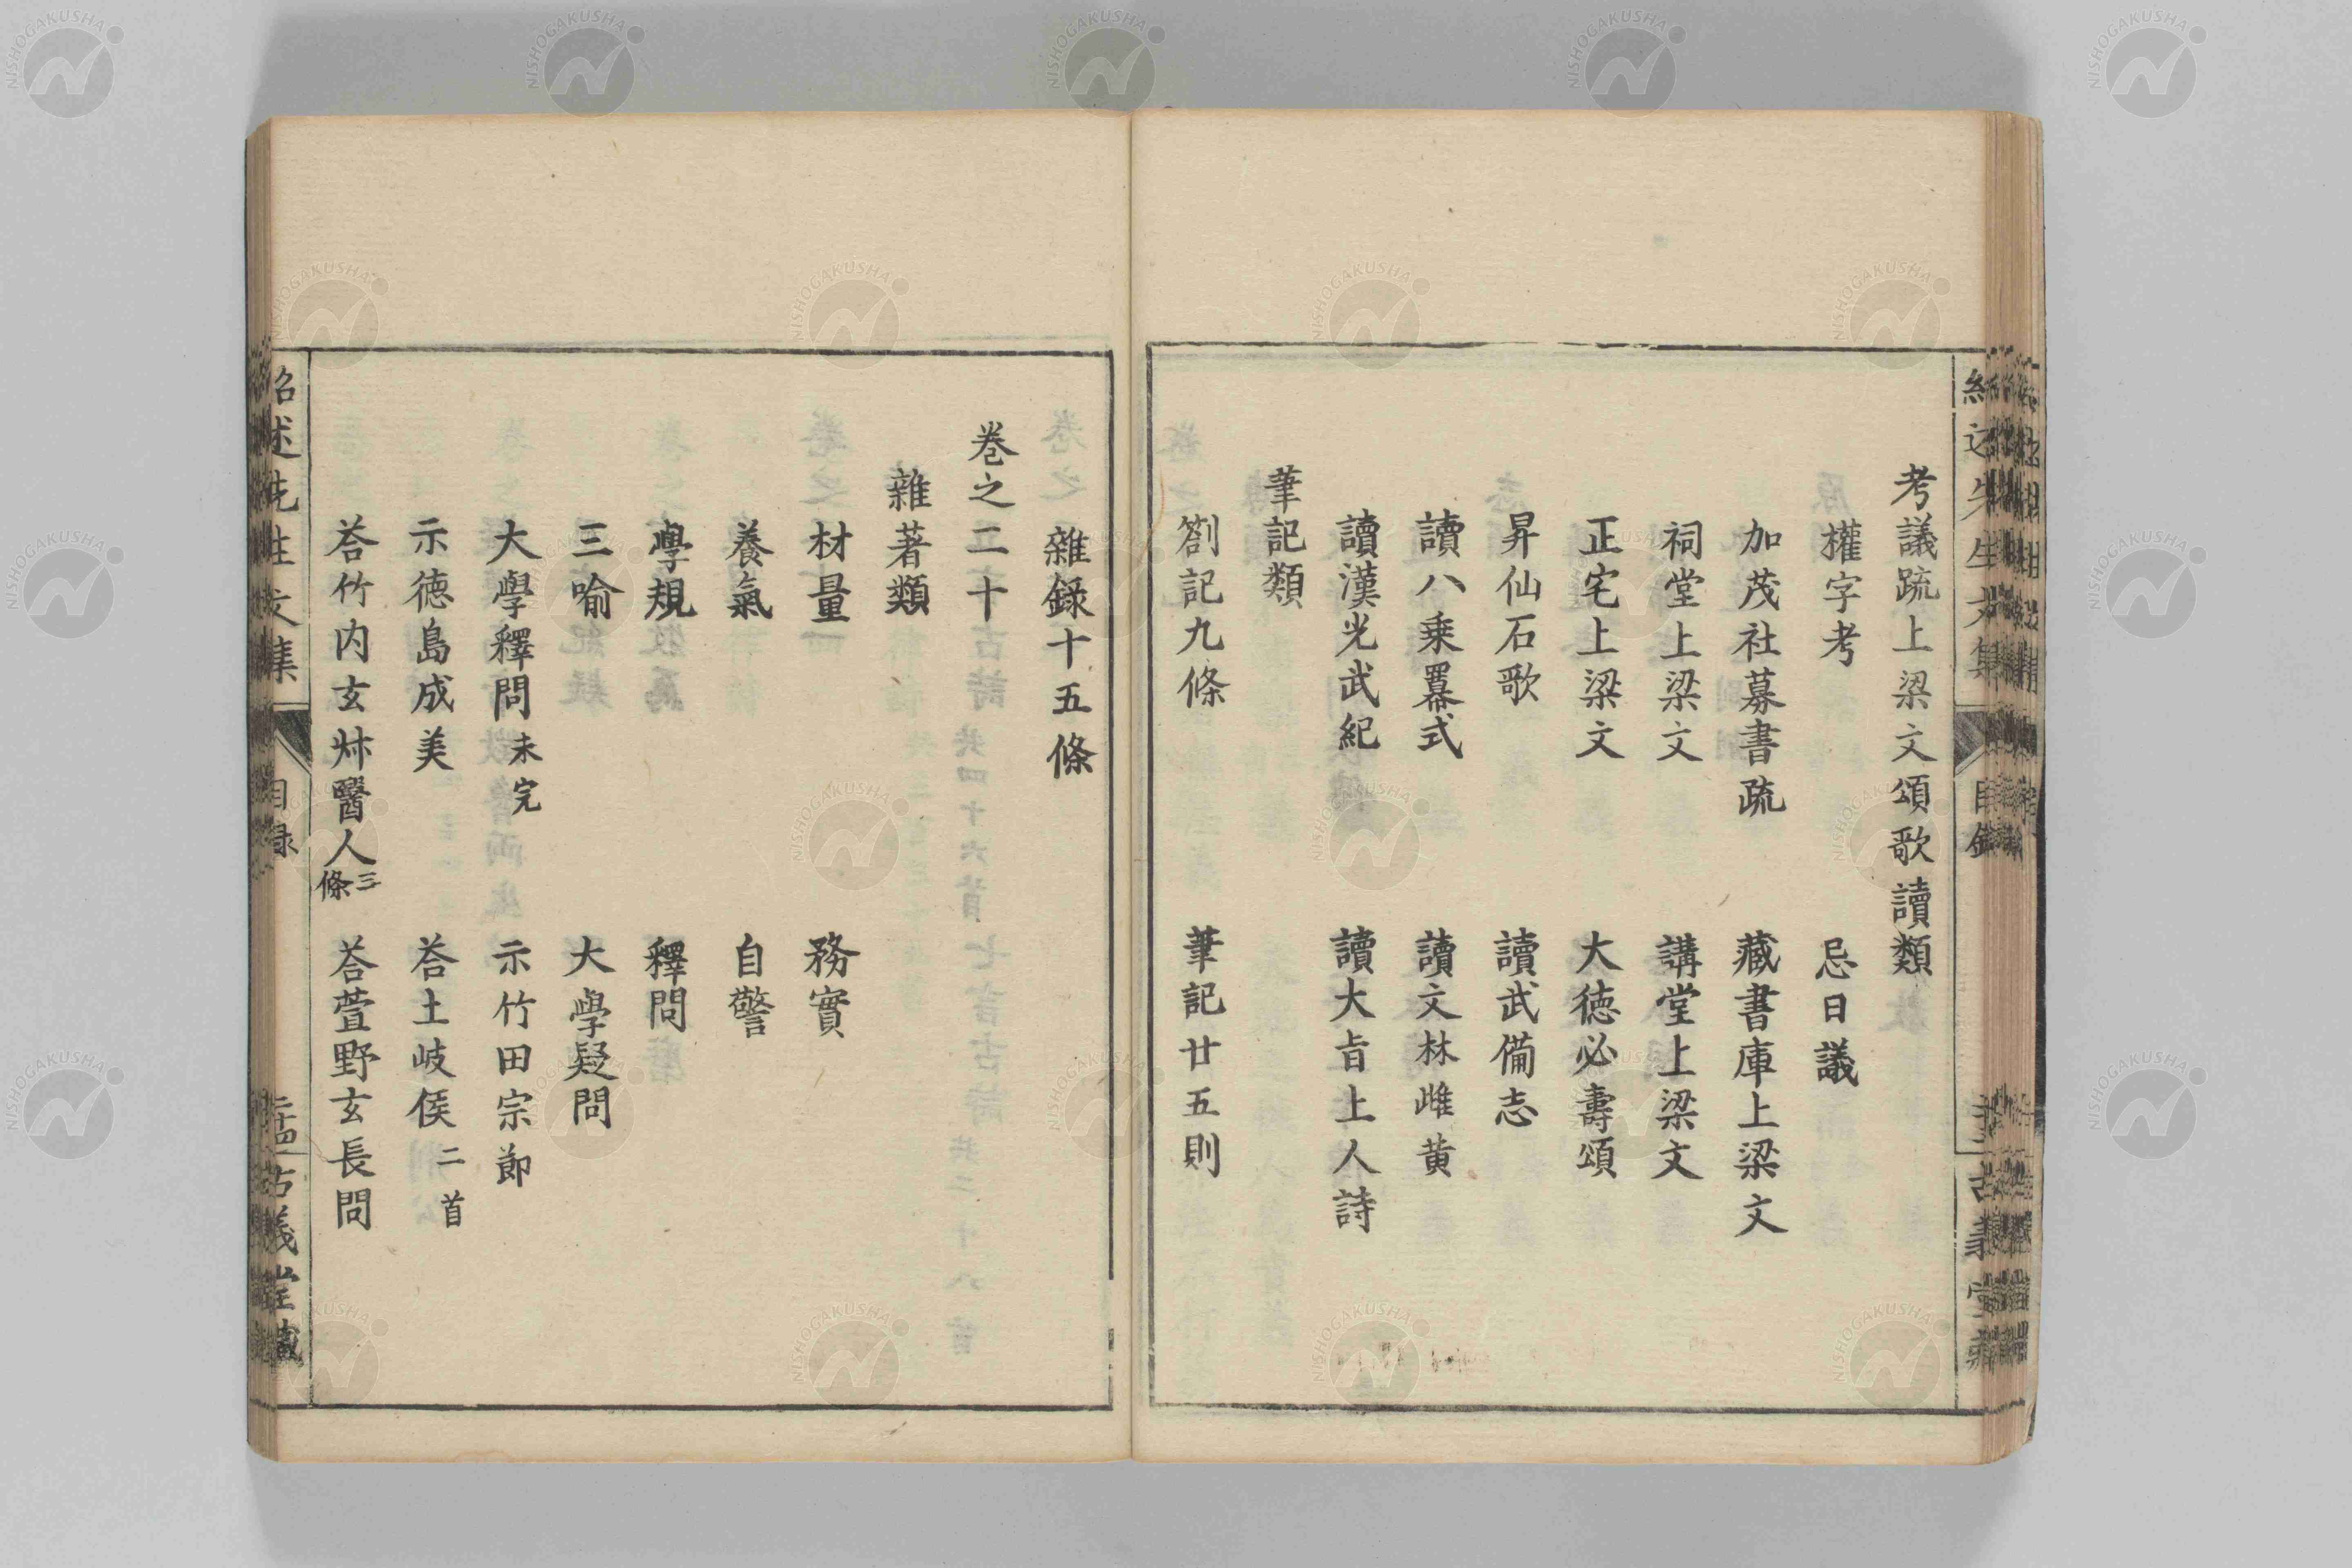 考議䟽上梁文頌歌讀類
權字考　忌日議
加茂社募書疏　藏書庫上梁文
祠堂上梁文　講堂上梁文
正宅上梁文　大德必壽頌
昇仙石歌　讀武備志
讀八乗羃式　讀文林雌黄
讀漢光武紀　讀大旨上人詩
筆記類
劄記九條　筆記廿五則
雜錄十五條
巻之二十
雜著類
材量　務實
養氣　自警
學規　釋問
三喻　大學疑問
大學釋問未完　示竹田宗節
示徳島成美　荅土岐侯二首
荅竹内玄㭍醫人三條　荅萱野玄長問
紹述先生文集　目録　古義堂藏
NISHOGAKUSHA